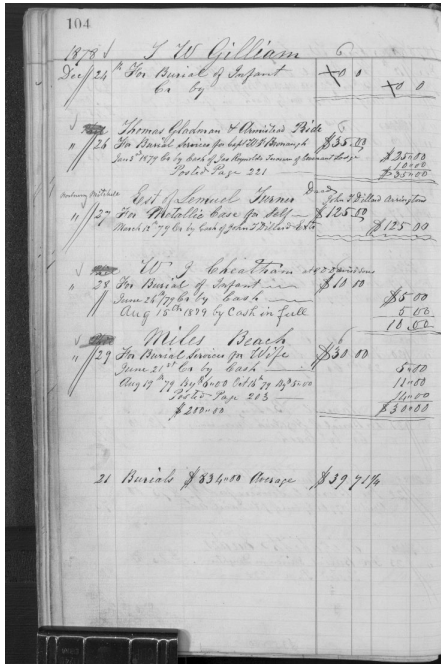 104
1878 T W Gilliam 6
Dec 24th For Burial of Infant X0 0
Cr by X0 0
Thomas Gladman & Armistead Pride 6
" 26 For Burial Services for Capt W W Burrough $35.00
Jan 2d 1879 Cr by Cash of Jas Reynolds Treasurer of Lodge $25.00
10.00
Posted Page 221 $35.00
Mitchell Est of Lemuel Turner Dead John T Dillard Arrington
" 27 For Metallic Case for Self $125.00
March 12th 79 Cr by Cash of John T Dillard Extr $125.00
W J Cheatham at Davidsons
" 28 For Burial of Infant $10 00
June 26th/79 Cr by Cash $5 00
Aug 15th 1879 by Cash in full 5 00
10 00
Miles Beach 6
" 29 For Burial Services for Wife $30 00
June 21st Cr by Cash 5.00
Aug 19th 79 6.00 Oct 16th 79 5.00 11.00
Posted Page 203 14.00
$200.00 $30.00
21 Burials $834.00 Average $39 71¼